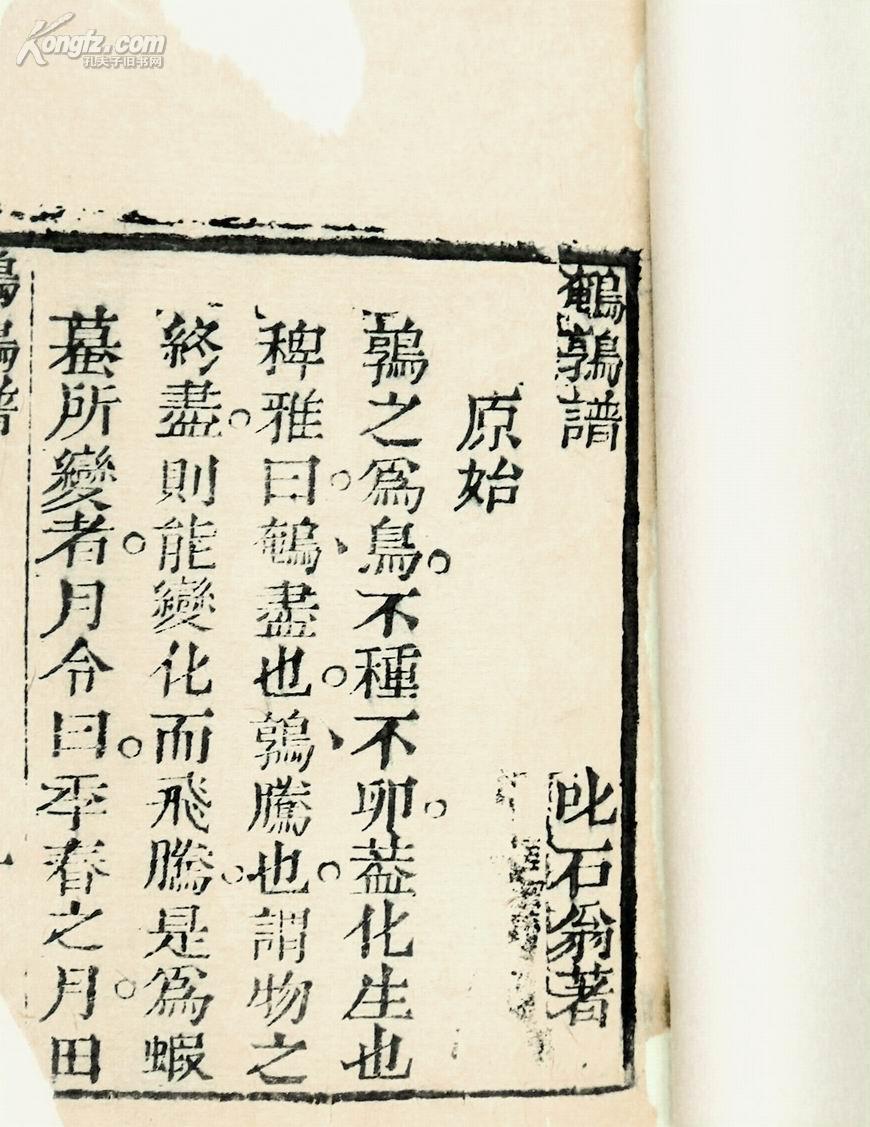 Kongfz.com
孔夫子旧书网
鵪鶉譜
叱石翁著
原始
鶉之為鳥。不種不卵。葢化生也
稗雅曰。鵪、盡也。鶉、騰也。謂物之
終盡。則能變化而飛騰。是為蝦
蟇所變者。月令曰。季春之月。田